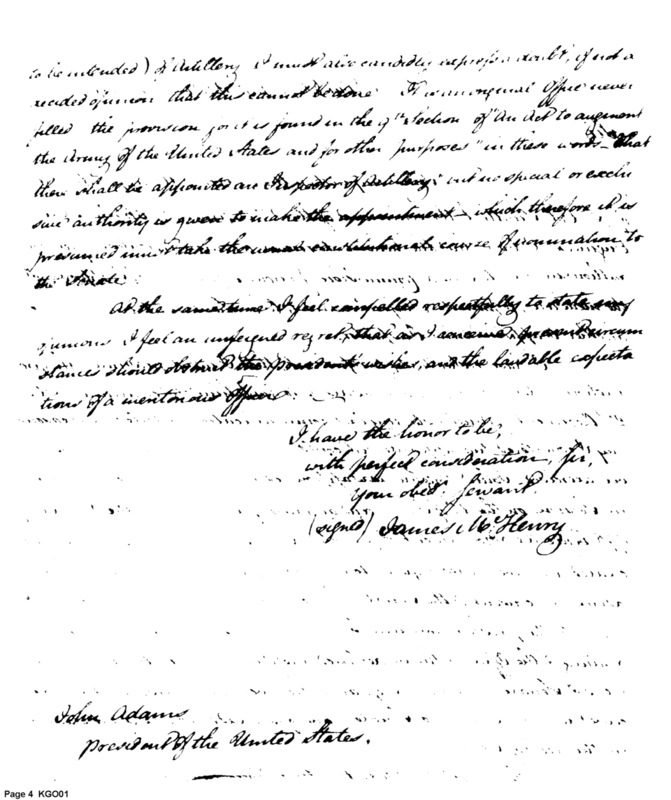 to be intended) of Artillery I must also candidly express a doubt, if not a
decided opinion that this cannot be done. It is an original Office never
filled the provision for it is found in the 9th Section of "An Act to augment
the Army of the United States and for other purposes" in these words "That
there shall be appointed an Inspector of Artillery": but no special or exclu
sive authority is given to make the appointment, which therefore it is
presumed must take the usual constitutional course of nomination to
the Senate.
At the same time I feel compelled respectfully to state my
opinions I feel an unfeigned regret, that as I conceive, present circum
stance should obstruct the presidents wishes, and the laudable expecta
tions of a meritorious officer.
I have the honor to be,
with perfect consideration, Sir,
your obed. Servant
(signed) James McHenry
John Adams
President of the United States.
Page 4 KGO01